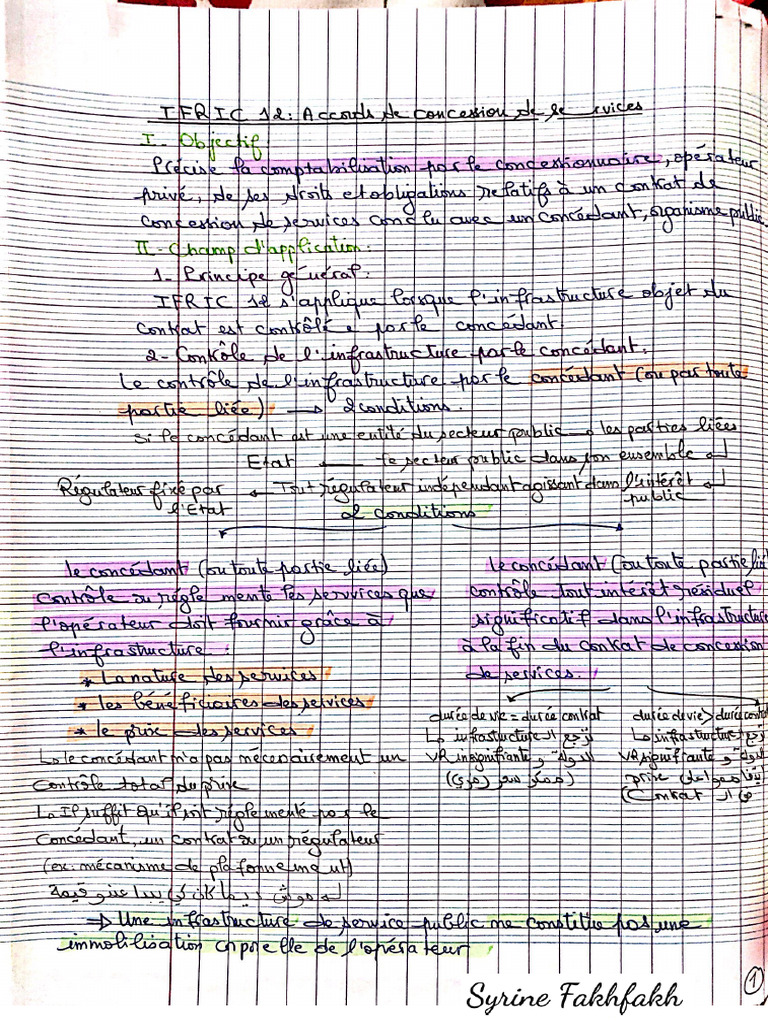 IFRIC 12: Accords de concession de services
I - Objectif:
Précise la comptabilisation par le concessionnaire, opérateur
privé, de ses droits et obligations relatifs à un contrat de
concession de services conclu avec un concédant, organisme public.
II - Champ d'application:
1 - Principe général:
IFRIC 12 s'applique lorsque l'infrastructure objet du
contrat est contrôlée par le concédant.
2 - Contrôle de l'infrastructure par le concédant:
Le contrôle de l'infrastructure par le concédant (ou par toute
partie liée) → 2 conditions.
Si le concédant est une entité du secteur public → les parties liées
Etat ← le secteur public dans son ensemble ↲
Régulateur fixé par l'Etat ← Tout régulateur indépendant agissant dans l'intérêt public ↲
2 Conditions
le concédant (ou toute partie liée)
contrôle ou réglemente les services que
l'opérateur doit fournir grâce à
l'infrastructure:
* La nature des services
* les bénéficiaires des services
* le prix des services
↳ le concédant n'a pas nécessairement un
contrôle total du prix
↳ Il suffit qu'il soit réglementé par le
concédant, un contrat ou un régulateur
(ex: mécanisme de plafonnement)
le concédant (ou toute partie liée)
contrôle tout intérêt résiduel
significatif dans l'infrastructure
à la fin du contrat de concession
de services.
durée de vie = durée contrat
↳ infrastructure ترجع الـ
VR insignifiante الدولة و
(رمزي)
durée de vie > durée contrat
↳ infrastructure ترجع الـ
VR signifiante الدولة و
prise
(contrat في الـ
⇒ Une infrastructure de service public ne constitue pas une
immobilisation corporelle de l'opérateur
1
Syrine Fakhfakh